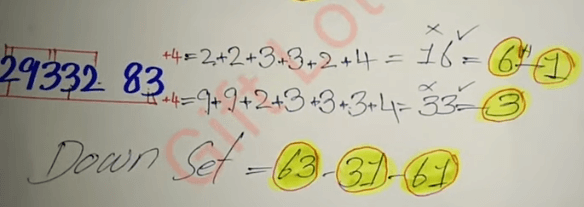 +4=2+2+3+3+2+4 = 16 = 6-1
29332 83
+4=9+9+2+3+3+3+4=33=3
Down Set = 63-31-61
Gift Lot